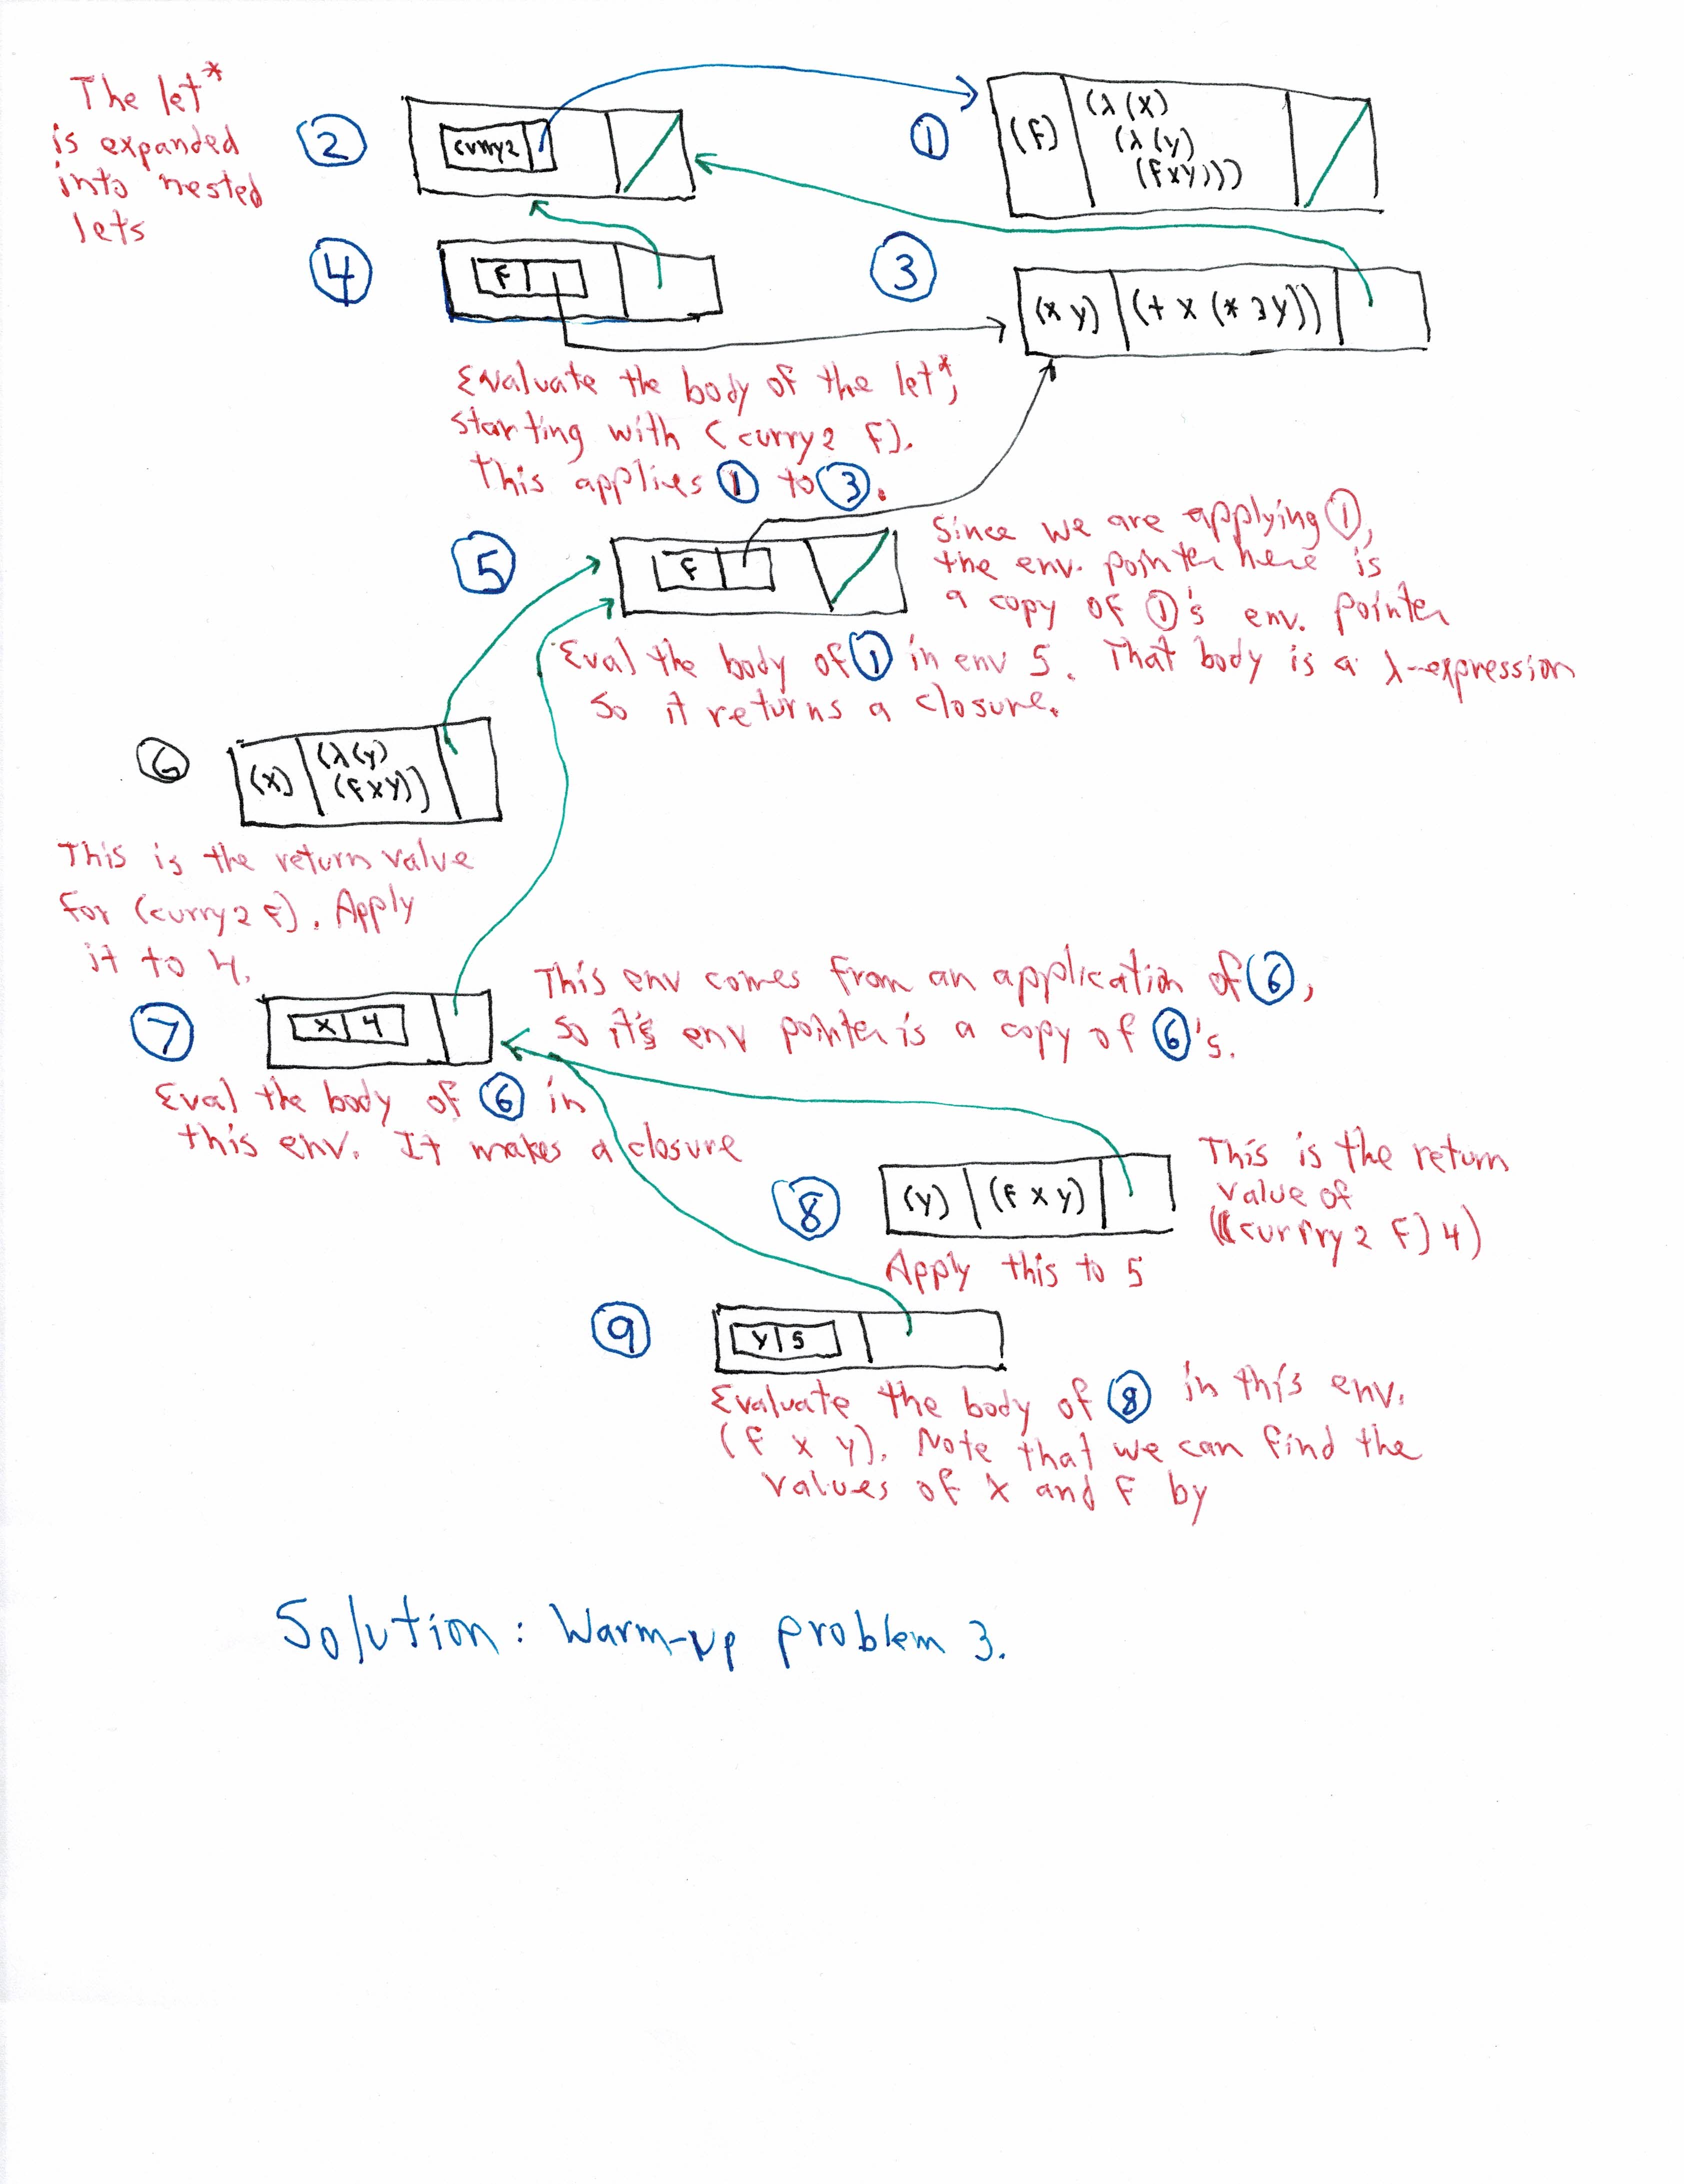 The let*
is expanded
into nested
lets
2
curry2
1
(f)
(λ (x)
(λ (y)
(f x y)))
4
f
3
(x y)
(+ x (* 3 y))
Evaluate the body of the let*,
starting with (curry2 f).
This applies 1 to 3.
5
f
Since we are applying 1,
the env. pointer here is
a copy of 1's env. pointer
Eval the body of 1 in env 5. That body is a λ-expression
so it returns a closure.
6
(x)
(λ (y)
(f x y))
This is the return value
for (curry2 f). Apply
it to 4.
7
x 4
This env comes from an application of 6,
so it's env pointer is a copy of 6's.
Eval the body of 6 in
this env. It makes a closure
8
(y)
(f x y)
This is the return
value of
((curry2 f) 4)
Apply this to 5
9
y 5
Evaluate the body of 8 in this env.
(f x y). Note that we can find the
values of x and f by
Solution: Warm-up problem 3.